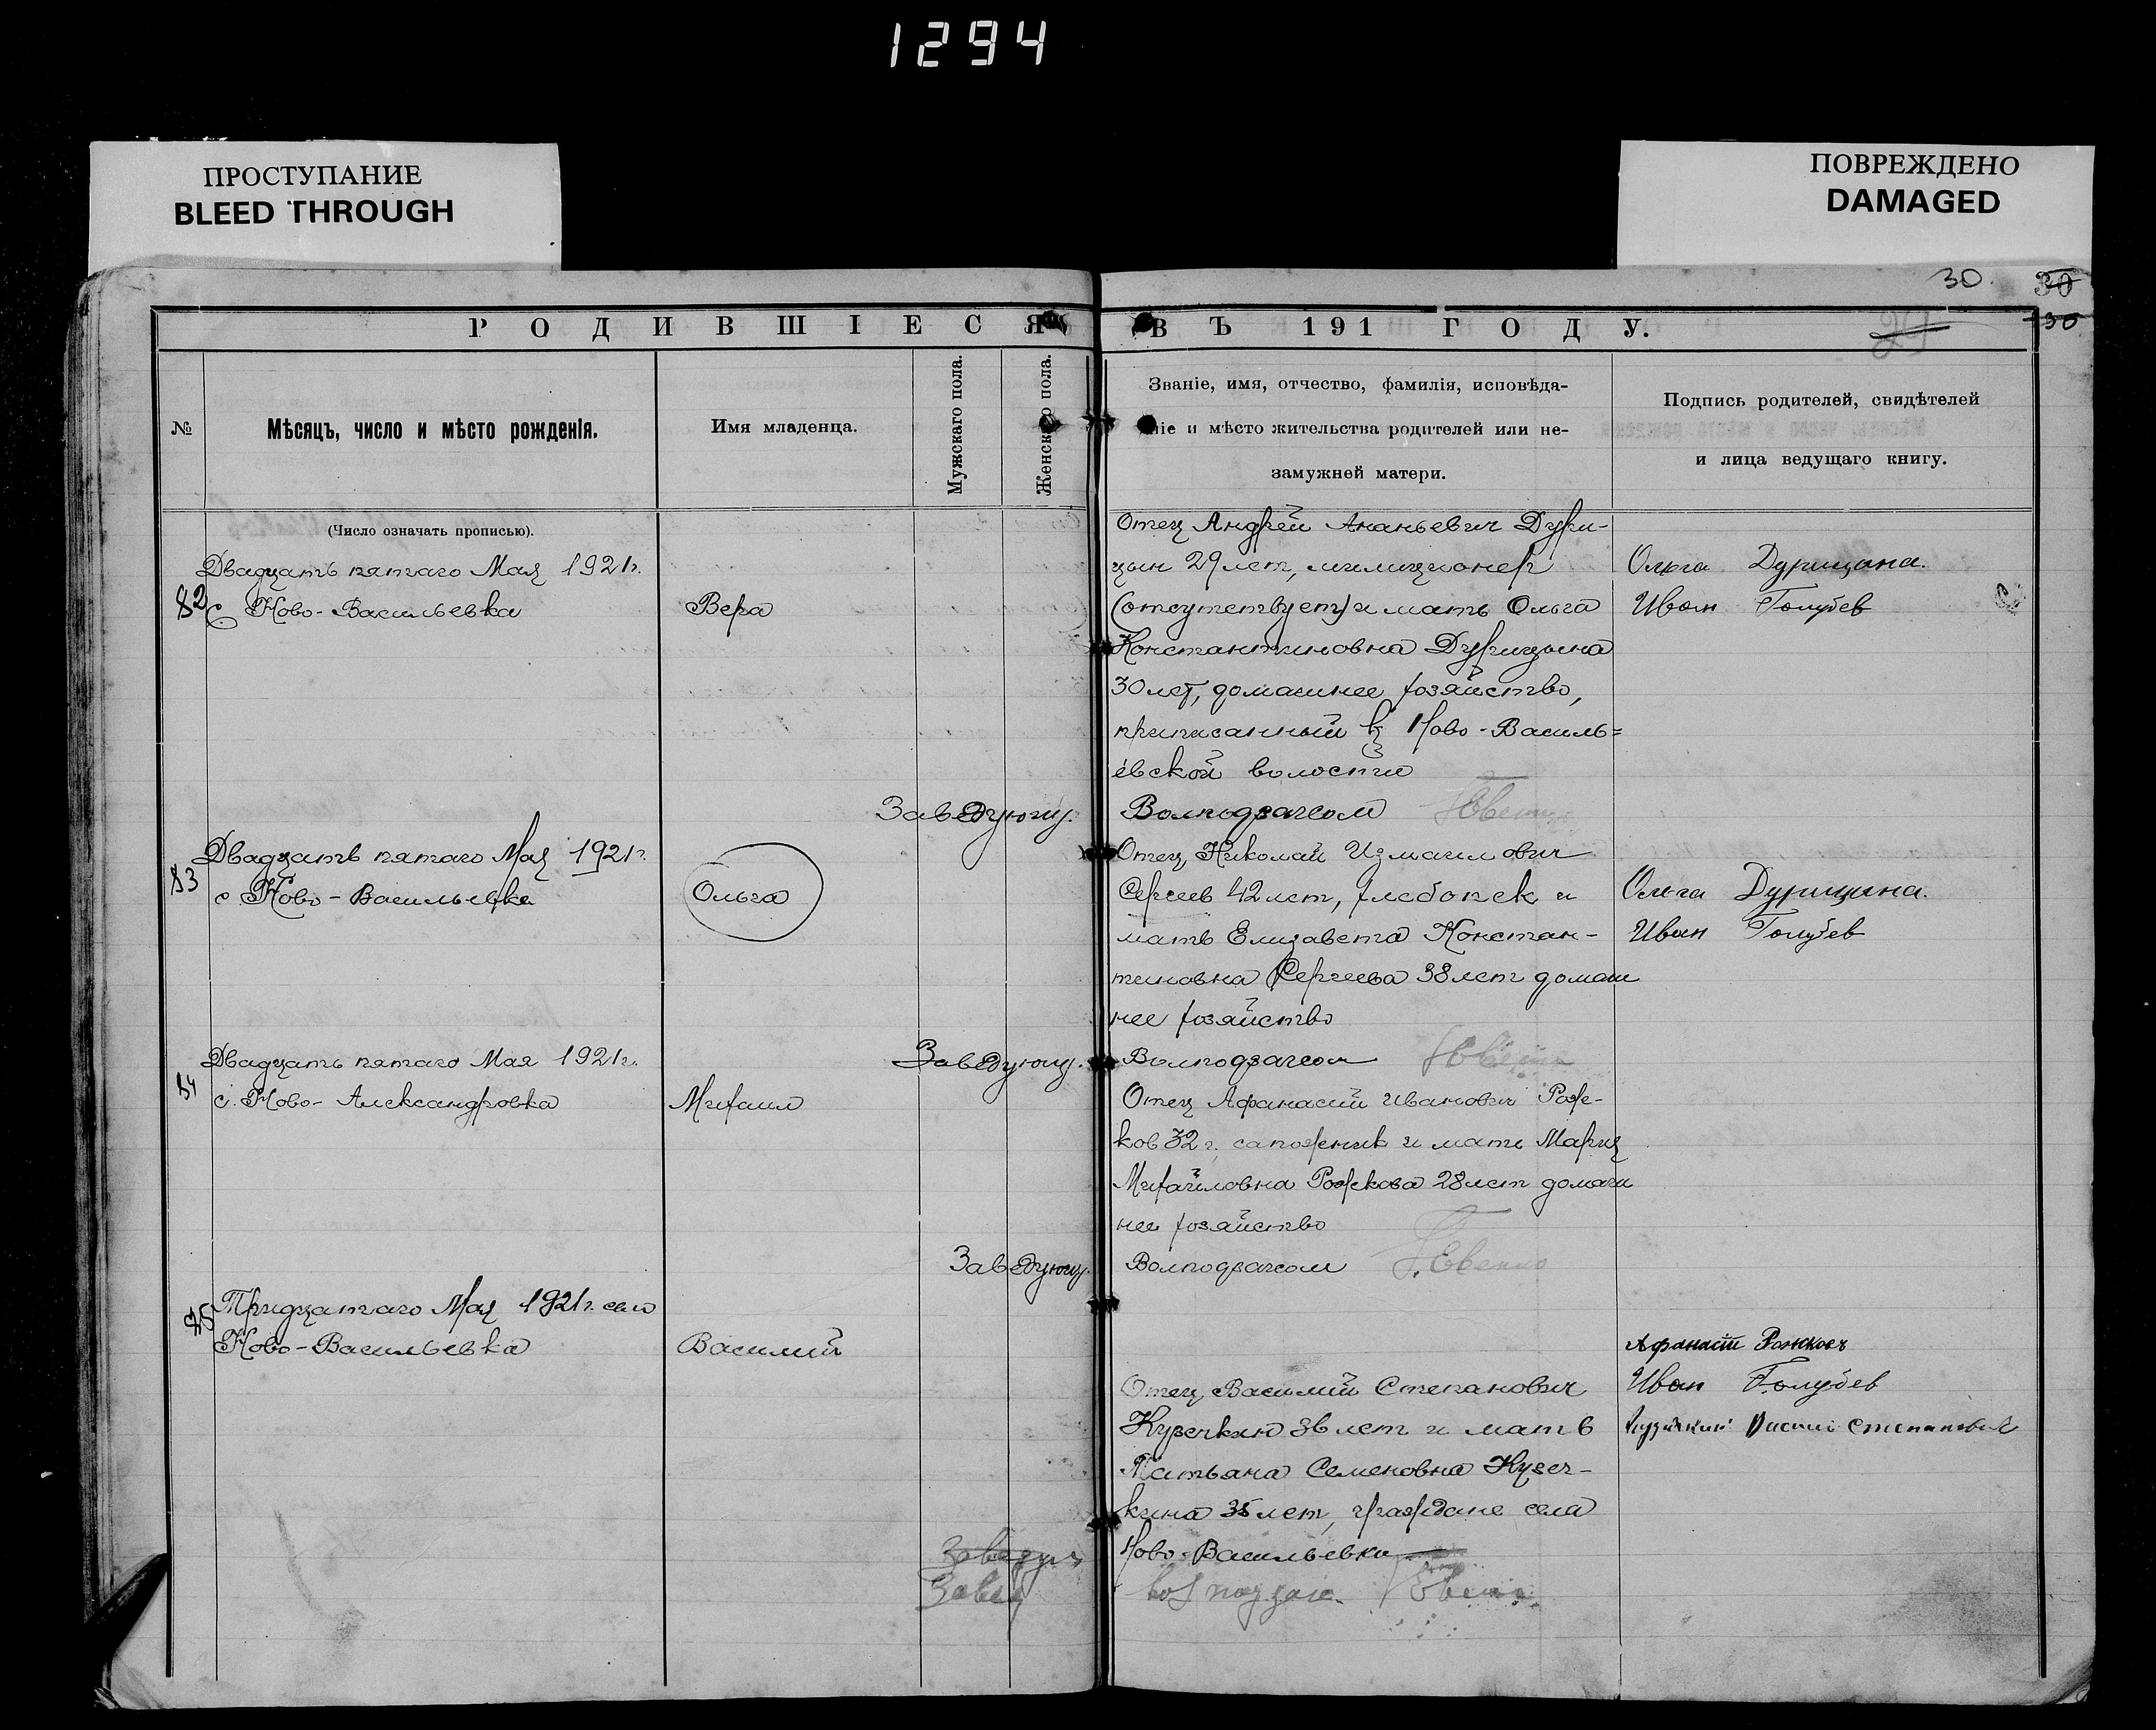 1294
ПРОСТУПАНИЕ
BLEED THROUGH
ПОВРЕЖДЕНО
DAMAGED
30.
30
30
29
РОДИВШІЕСЯ
ВЪ 191 ГОДУ.
№
Мѣсяцъ, число и мѣсто рожденія.
Имя младенца.
Мужскаго пола.
Женскаго пола.
Званіе, имя, отчество, фамилія, исповѣда-
ніе и мѣсто жительства родителей или не-
замужней матери.
Подпись родителей, свидѣтелей
и лица ведущаго книгу.
(Число означать прописью).
82
Двадцать пятаго Мая 1921г.
с Ново-Васильевка
Вера
Отец Андрей Ананьевич Дури-
цын 29 лет, милиционер
(отсутствует) и мать Ольга
Константиновна Дурицына
30 лет, домашнее хозяйство,
приписанный к Ново-Василь=
евской волости
Ольга Дурицына.
Иван Голубев
Заведующ. Волподзагсом
83
Двадцать пятаго Мая 1921г.
с. Ново-Васильевка
Ольга
Отец Николай Измаилович
Сергеев 42 лет, хлебопек и
мать Елизавета Констан-
тиновна Сергеева 38 лет домаш
нее хозяйство
Ольга Дурицина.
Иван Голубев
Заведующ. Волподзагсом
84
Двадцать пятаго Мая 1921г.
с. Ново-Александровка
Михаил
Отец Афанасий Иванович Рож-
ков 32 г., сапожник и мать Мария
Михайловна Рожкова 28 лет домаш
нее хозяйство
Заведующ. Волподзагсом
85
Тридцатаго Мая 1921г. село
Ново-Васильевка
Василий
Афанасий Рожковъ
Иван Голубев
Отец Василий Степанович
Кузечкин 36 лет и мать
Татьяна Семеновна Кузеч-
кина 35 лет, граждане села
Ново-Васильевки
Степанович
Заведующ
Завед